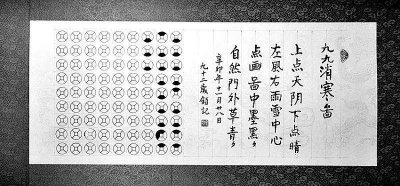 九九消寒啚
上点天阴下点晴
左風右雨雪中心
点画啚中墨黑々
自然門外草青々
辛卯年十一月廿八日
九十二歲 記